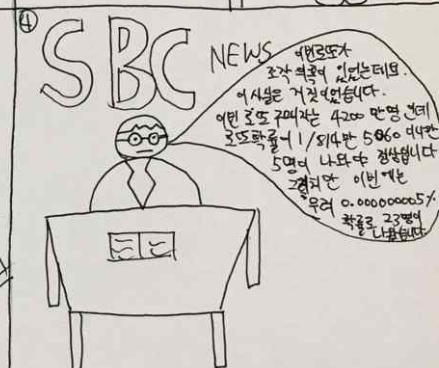 ④
SBC NEWS
이번로또가
조작의혹이 있었는데요.
이사실은 거짓이었습니다.
이번 로또 구매자는 4200 만명 인데
로또확률이 1/814만 5060 이니깐
5명이 나와야 정상입니다
그렇지만 이번에는
무려 0.00000005%
확률로 23명이
나왔습니다.